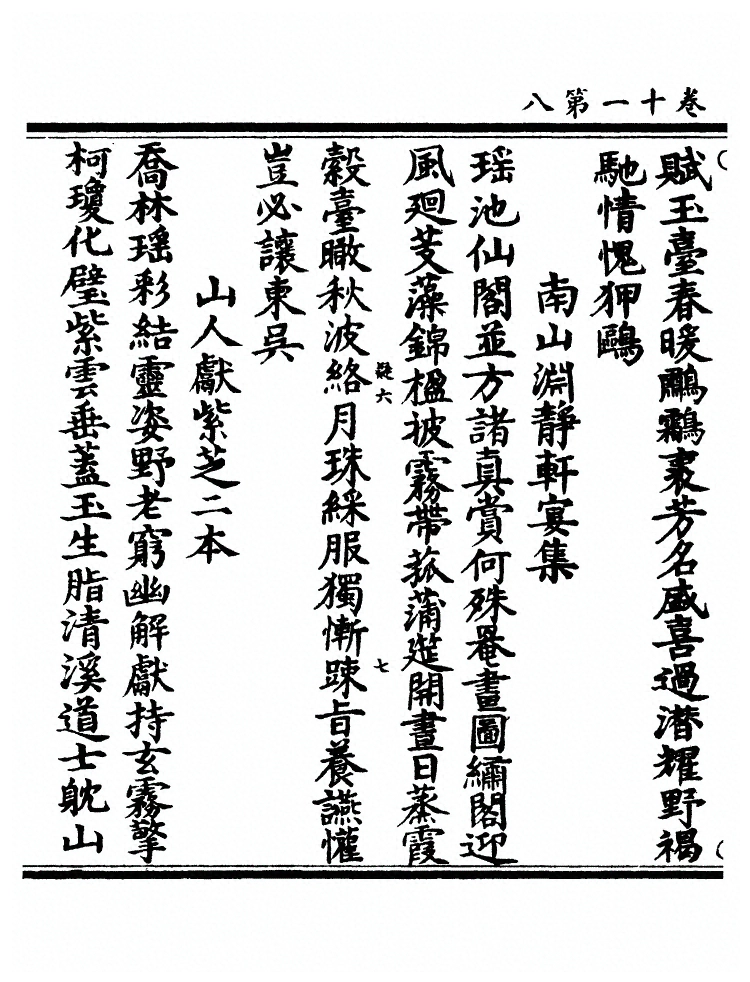 卷十一第八
賦玉臺春暖鸝鸘裘芳名盛喜過潛耀野褐
馳情愧狎鷗
南山淵靜軒宴集
瑶池仙閣並方諸真賞何殊罨畫圖繡閣迎
風廻芰藻錦楹披霧帶菰蒲筵開晝日蒸霞
縠臺瞰秋波絡月珠綵服獨慚踈旨養讌懽
疑六
七
豈必讓東吳
山人獻紫芝二本
喬林瑶彩結靈姿野老窮幽解獻持玄霧擎
柯瓊化璧紫雲垂蓋玉生脂清溪道士躭山